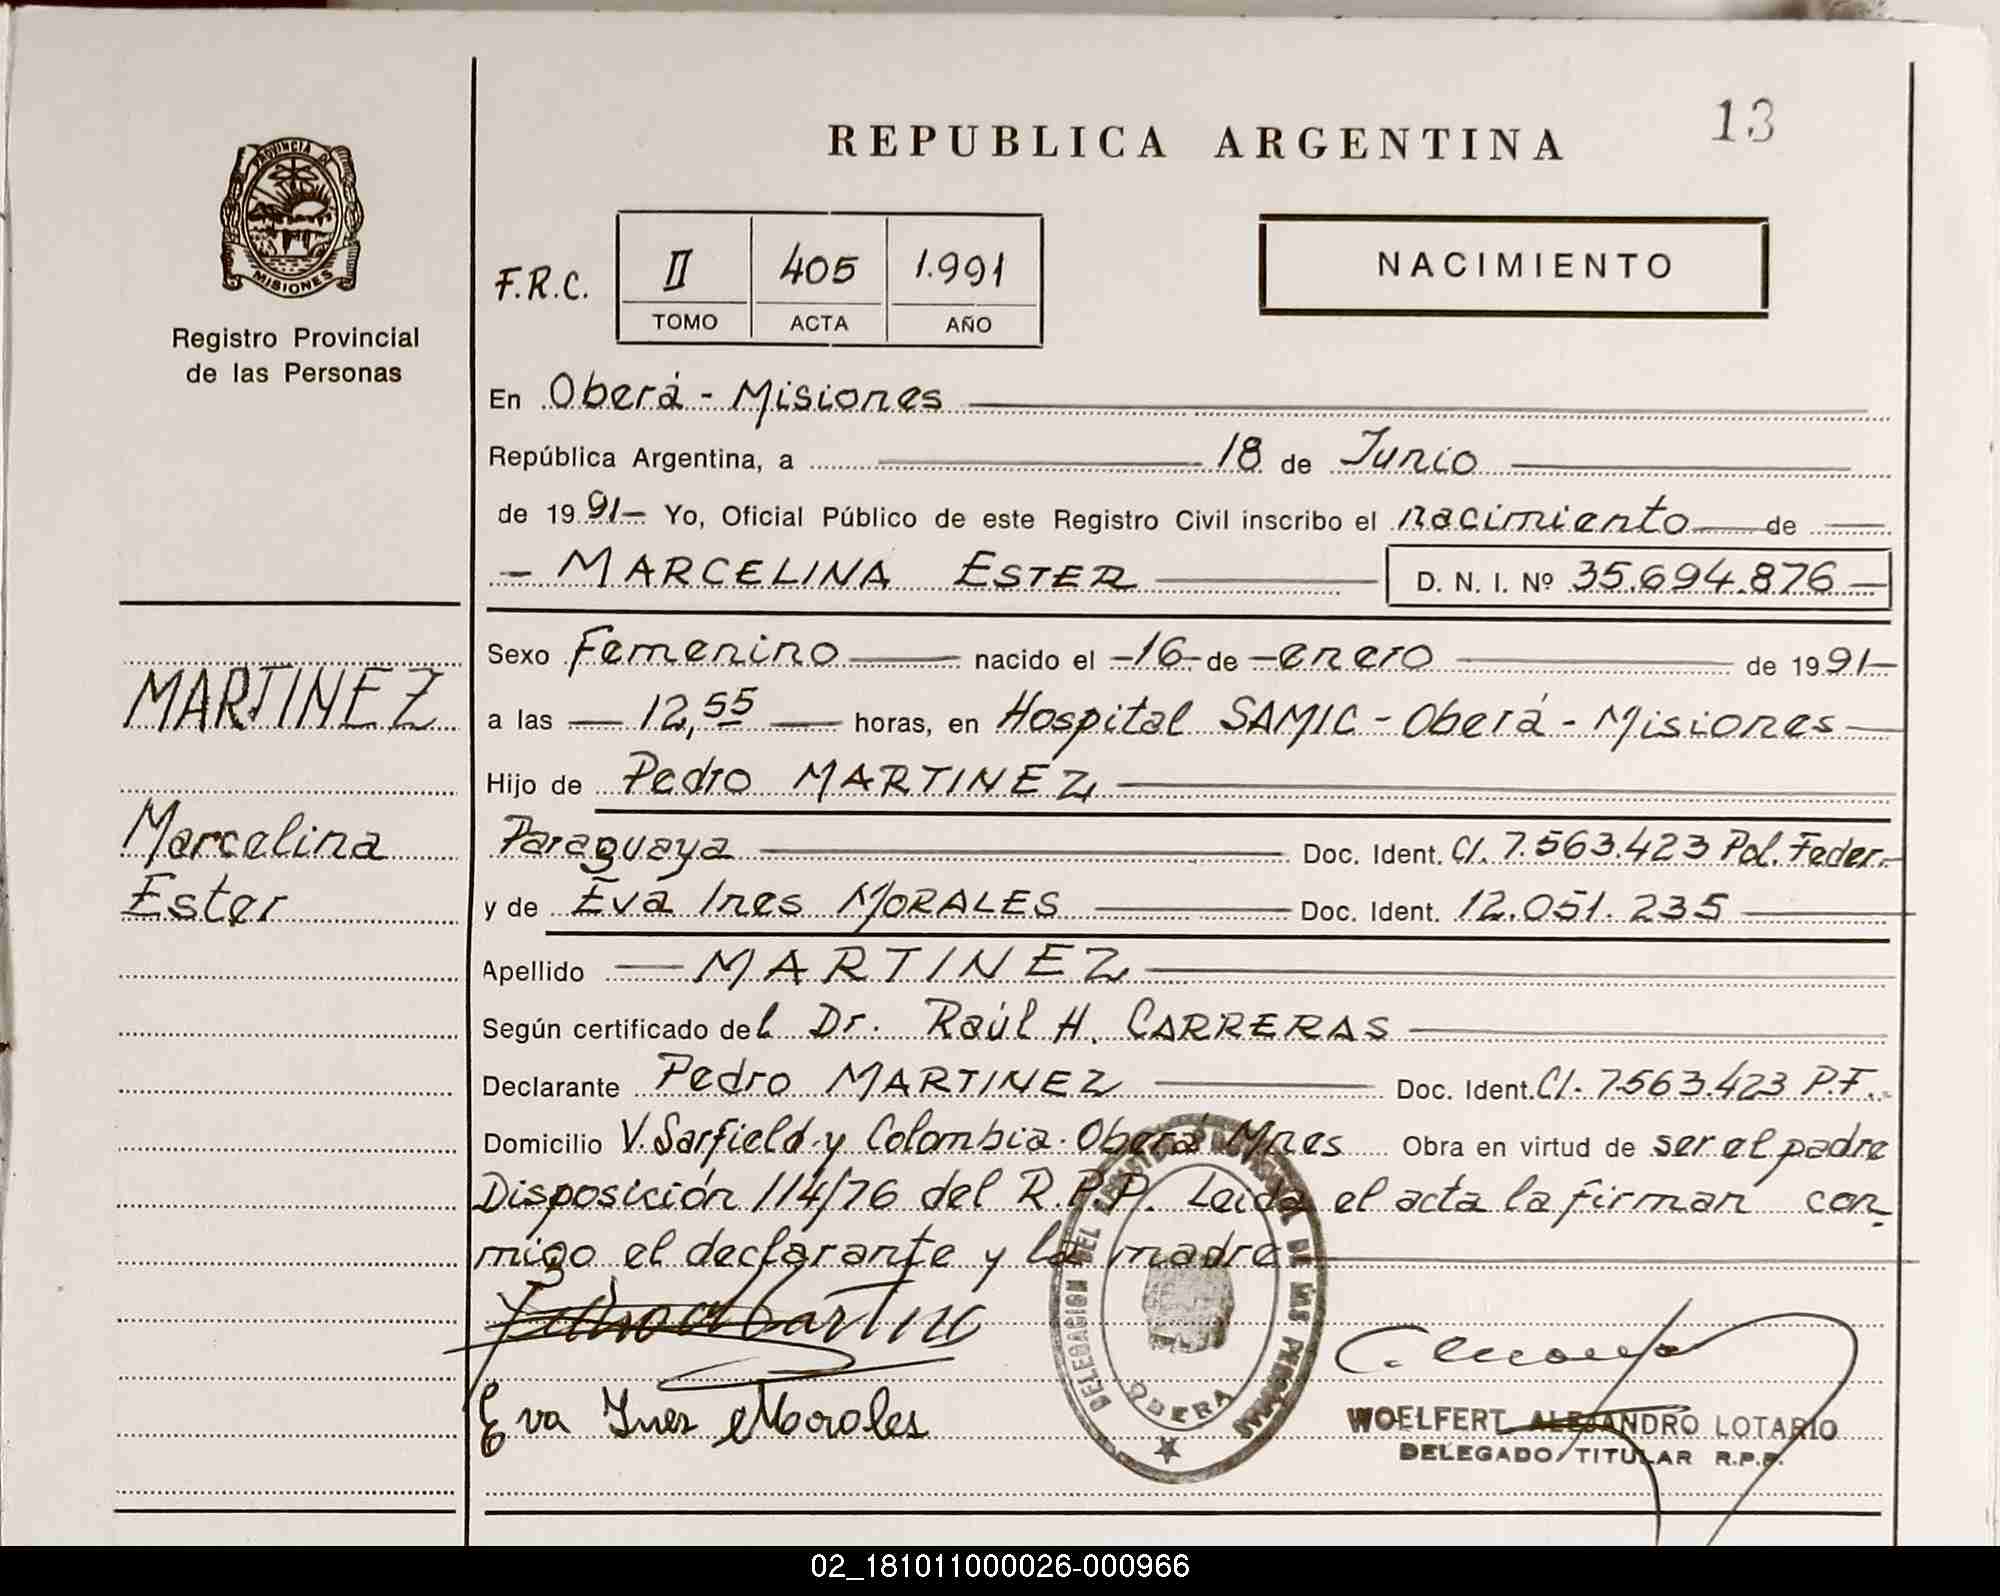 13
REPUBLICA ARGENTINA
PROVINCIA DE
MISIONES
Registro Provincial
de las Personas
NACIMIENTO
F.R.C. II 405 1.991
TOMO ACTA AÑO
En Oberá - Misiones
República Argentina, a 18 de Junio
de 1991- Yo, Oficial Público de este Registro Civil inscribo el nacimiento de
- MARCELINA ESTER D. N. I. Nº 35.694.876
MARTINEZ
Marcelina
Ester
Sexo Femenino nacido el -16- de -enero de 1991-
a las 12,55 horas, en Hospital SAMIC - Oberá - Misiones
Hijo de Pedro MARTINEZ
Paraguaya Doc. Ident. CI. 7.563.423 Pol. Feder.
y de Eva Ines MORALES Doc. Ident. 12.051.235
Apellido MARTINEZ
Según certificado del Dr. Raúl H. CARRERAS
Declarante Pedro MARTINEZ Doc. Ident. CI. 7.563.423 P.F.
Domicilio V. Sarfield y Colombia. Oberá Mnes Obra en virtud de ser el padre
Disposición 114/76 del R.P.P. Leida el acta la firman con-
migo el declarante y la madre
Pedro Martinez
Eva Ines Morales
DELEGACION DEL REGISTRO PROVINCIAL DE LAS PERSONAS
OBERA
WOELFERT ALEJANDRO LOTARIO
DELEGADO TITULAR R.P.P.
02_181011000026-000966